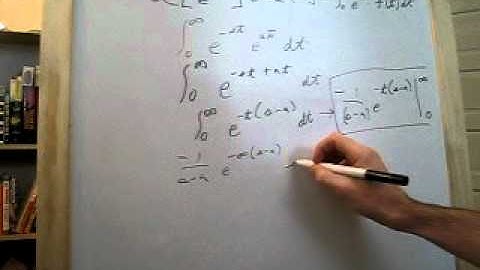 ∫₀^∞ e^{-st} e^{at} dt
∫₀^∞ e^{-st + at} dt
∫₀^∞ e^{-t(s-a)} dt → -1/(s-a) e^{-t(s-a)} |₀^∞
-1/(s-a) e^{-∞(s-a)}